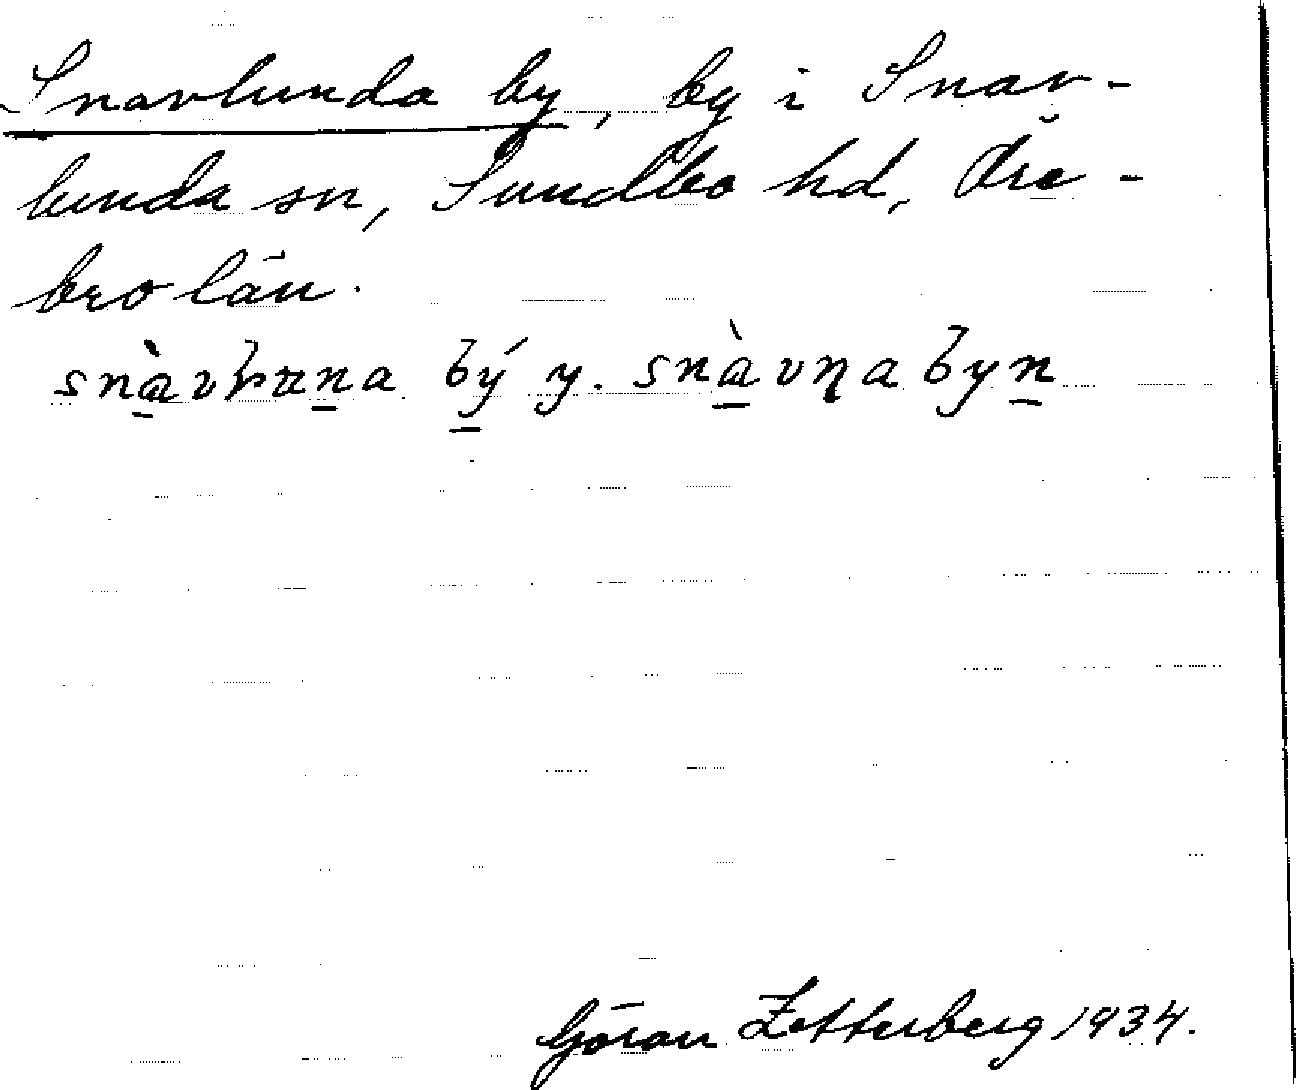 Snavlunda by, by i Snav-
lunda sn, Sundbo hd, Öre-
bro län.
snàvluna bý y. snàvṇa byn
Göran Zetterberg 1934.